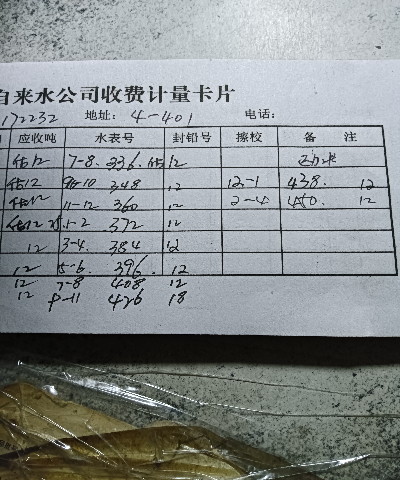 自来水公司收费计量卡片
172232 地址: 4-401 电话:
应收吨 水表号 封铅号 擦校 备 注
估12 7-8. 336. 估12
估12 9-10 348 12 12-1 438. 12
估12 11-12 360 12 2-4 450. 12
估12 1-2 372 12
12 3-4. 384 12
12 5-6. 396. 12
12 7-8 408 12
12 9-11 426 18